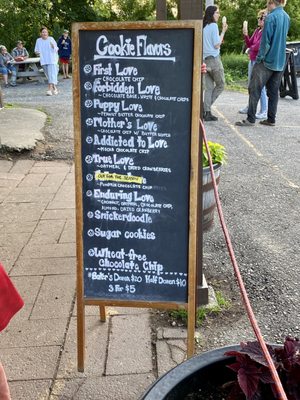 Cookie Flavors
First Love
- CHOCOLATE CHIP
Forbidden Love
- CHOCOLATE BASE, WHITE CHOCOLATE CHIPS
Puppy Love
- PEANUT BUTTER CHOCOLATE CHIP
Mother's Love
- CHOCOLATE CHIP W/ BUTTER
Addicted to Love
- MOCHA CHOCOLATE CHIP
True Love
- OATMEAL & DRIED CRANBERRIES
OUT FOR THE SEASON
- PUMPKIN CHOCOLATE CHIP
Enduring Love
- COCONUT, OATMEAL, CHOCOLATE CHIP,
ALMOND, DRIED CRANBERRY
Snickerdoodle
Sugar cookies
Wheat-free
Chocolate Chip
Baker's Dozen $20 Half Dozen $10
3 for $5